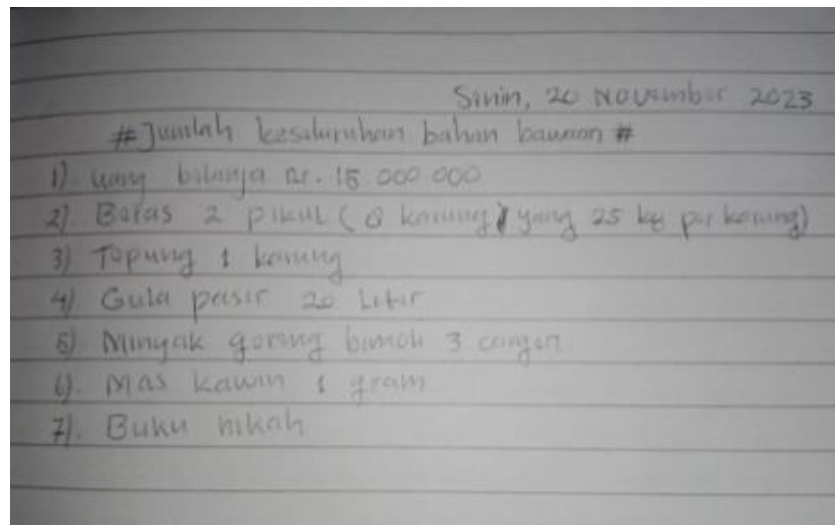 Senin, 20 November 2023
# Jumlah keseluruhan bahan bawaan #
1). Uang belanja Rp. 15.000.000
2). Beras 2 pikul (8 karung yang 25 kg per karung)
3) Tepung 1 karung
4). Gula pasir 20 Liter
5) Minyak goreng bimoli 3 cergen
6). Mas kawin 1 gram
7). Buku nikah